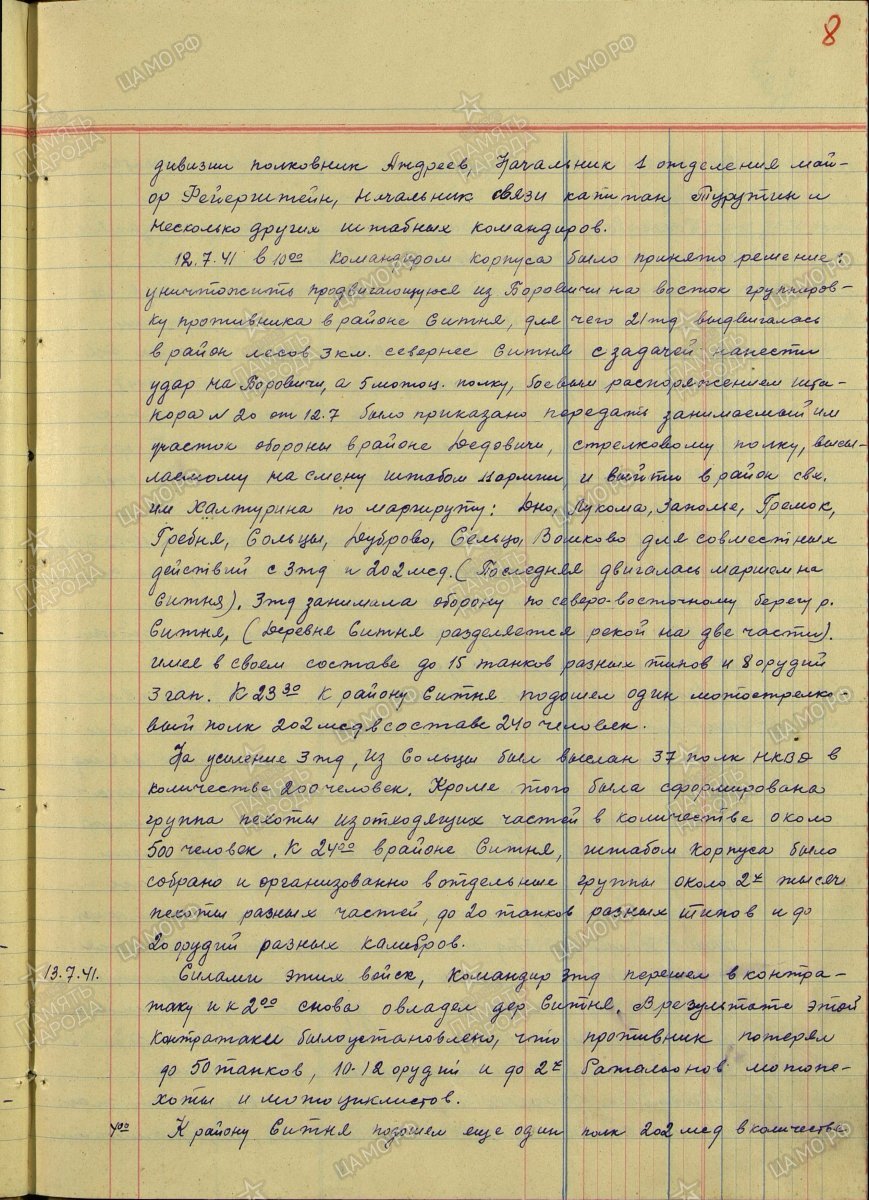 8
дивизии полковник Андреев, Начальник 1 отделения май-
ор Фейергштейн, начальник связи капитан Турутин и
несколько других штабных командиров.
12.7.41 в 10 00 Командиром корпуса было принято решение:
уничтожить продвигающуюся из Боровичи на восток группиров-
ку противника в районе Ситня, для чего 21 тд выдвигалась
в район лесов 3 км. севернее Ситня с задачей нанести
удар на Боровичи, а 5 мотоц. полку, боевым распоряжением шта-
кора N 20 от 12.7 было приказано передать занимаемый им
участок обороны в районе Дедовичи, стрелковому полку, высы-
лаемому на смену штабом Армии и выйти в район свх.
им Халтурина по маршруту: Дно, Лукома, Заполье, Гремок,
Гребня, Сольцы, Дуброво, Сельцо, Вошково для совместных
действий с 3 тд и 202 мсд. (Последняя двигалась маршем на
Ситня). 3 тд занимала оборону по северо-восточному берегу р.
Ситня, (Деревня Ситня разделяется рекой на две части).
имея в своем составе до 15 танков разных типов и 8 орудий
3 гап. К 23 30 к району Ситня подошел один мотострелко-
вый полк 202 мсд в составе 240 человек.
На усиление 3 тд, из Сольцы был выслан 37 полк НКВД в
количестве 200 человек. Кроме того была сформирована
группа пехоты из отходящих частей в количестве около
500 человек. К 24 00 в районе Ситня, штабом корпуса было
собрано и организованно в отдельные группы около 2х тысяч
пехоты разных частей, до 20 танков разных типов и до
20 орудий разных калибров.
13.7.41. Силами этих войск, Командир 3 тд перешел в контра-
таку и к 2 00 снова овладел дер Ситня. В результате этой
контратаки было установлено, что противник потерял
до 50 танков, 10-12 орудий и до 2х батальонов мотопе-
хоты и мотоциклистов.
4 00 К району Ситня подошел еще один полк 202 мсд в количестве
ЦАМО.РФ
ПАМЯТЬ НАРОДА